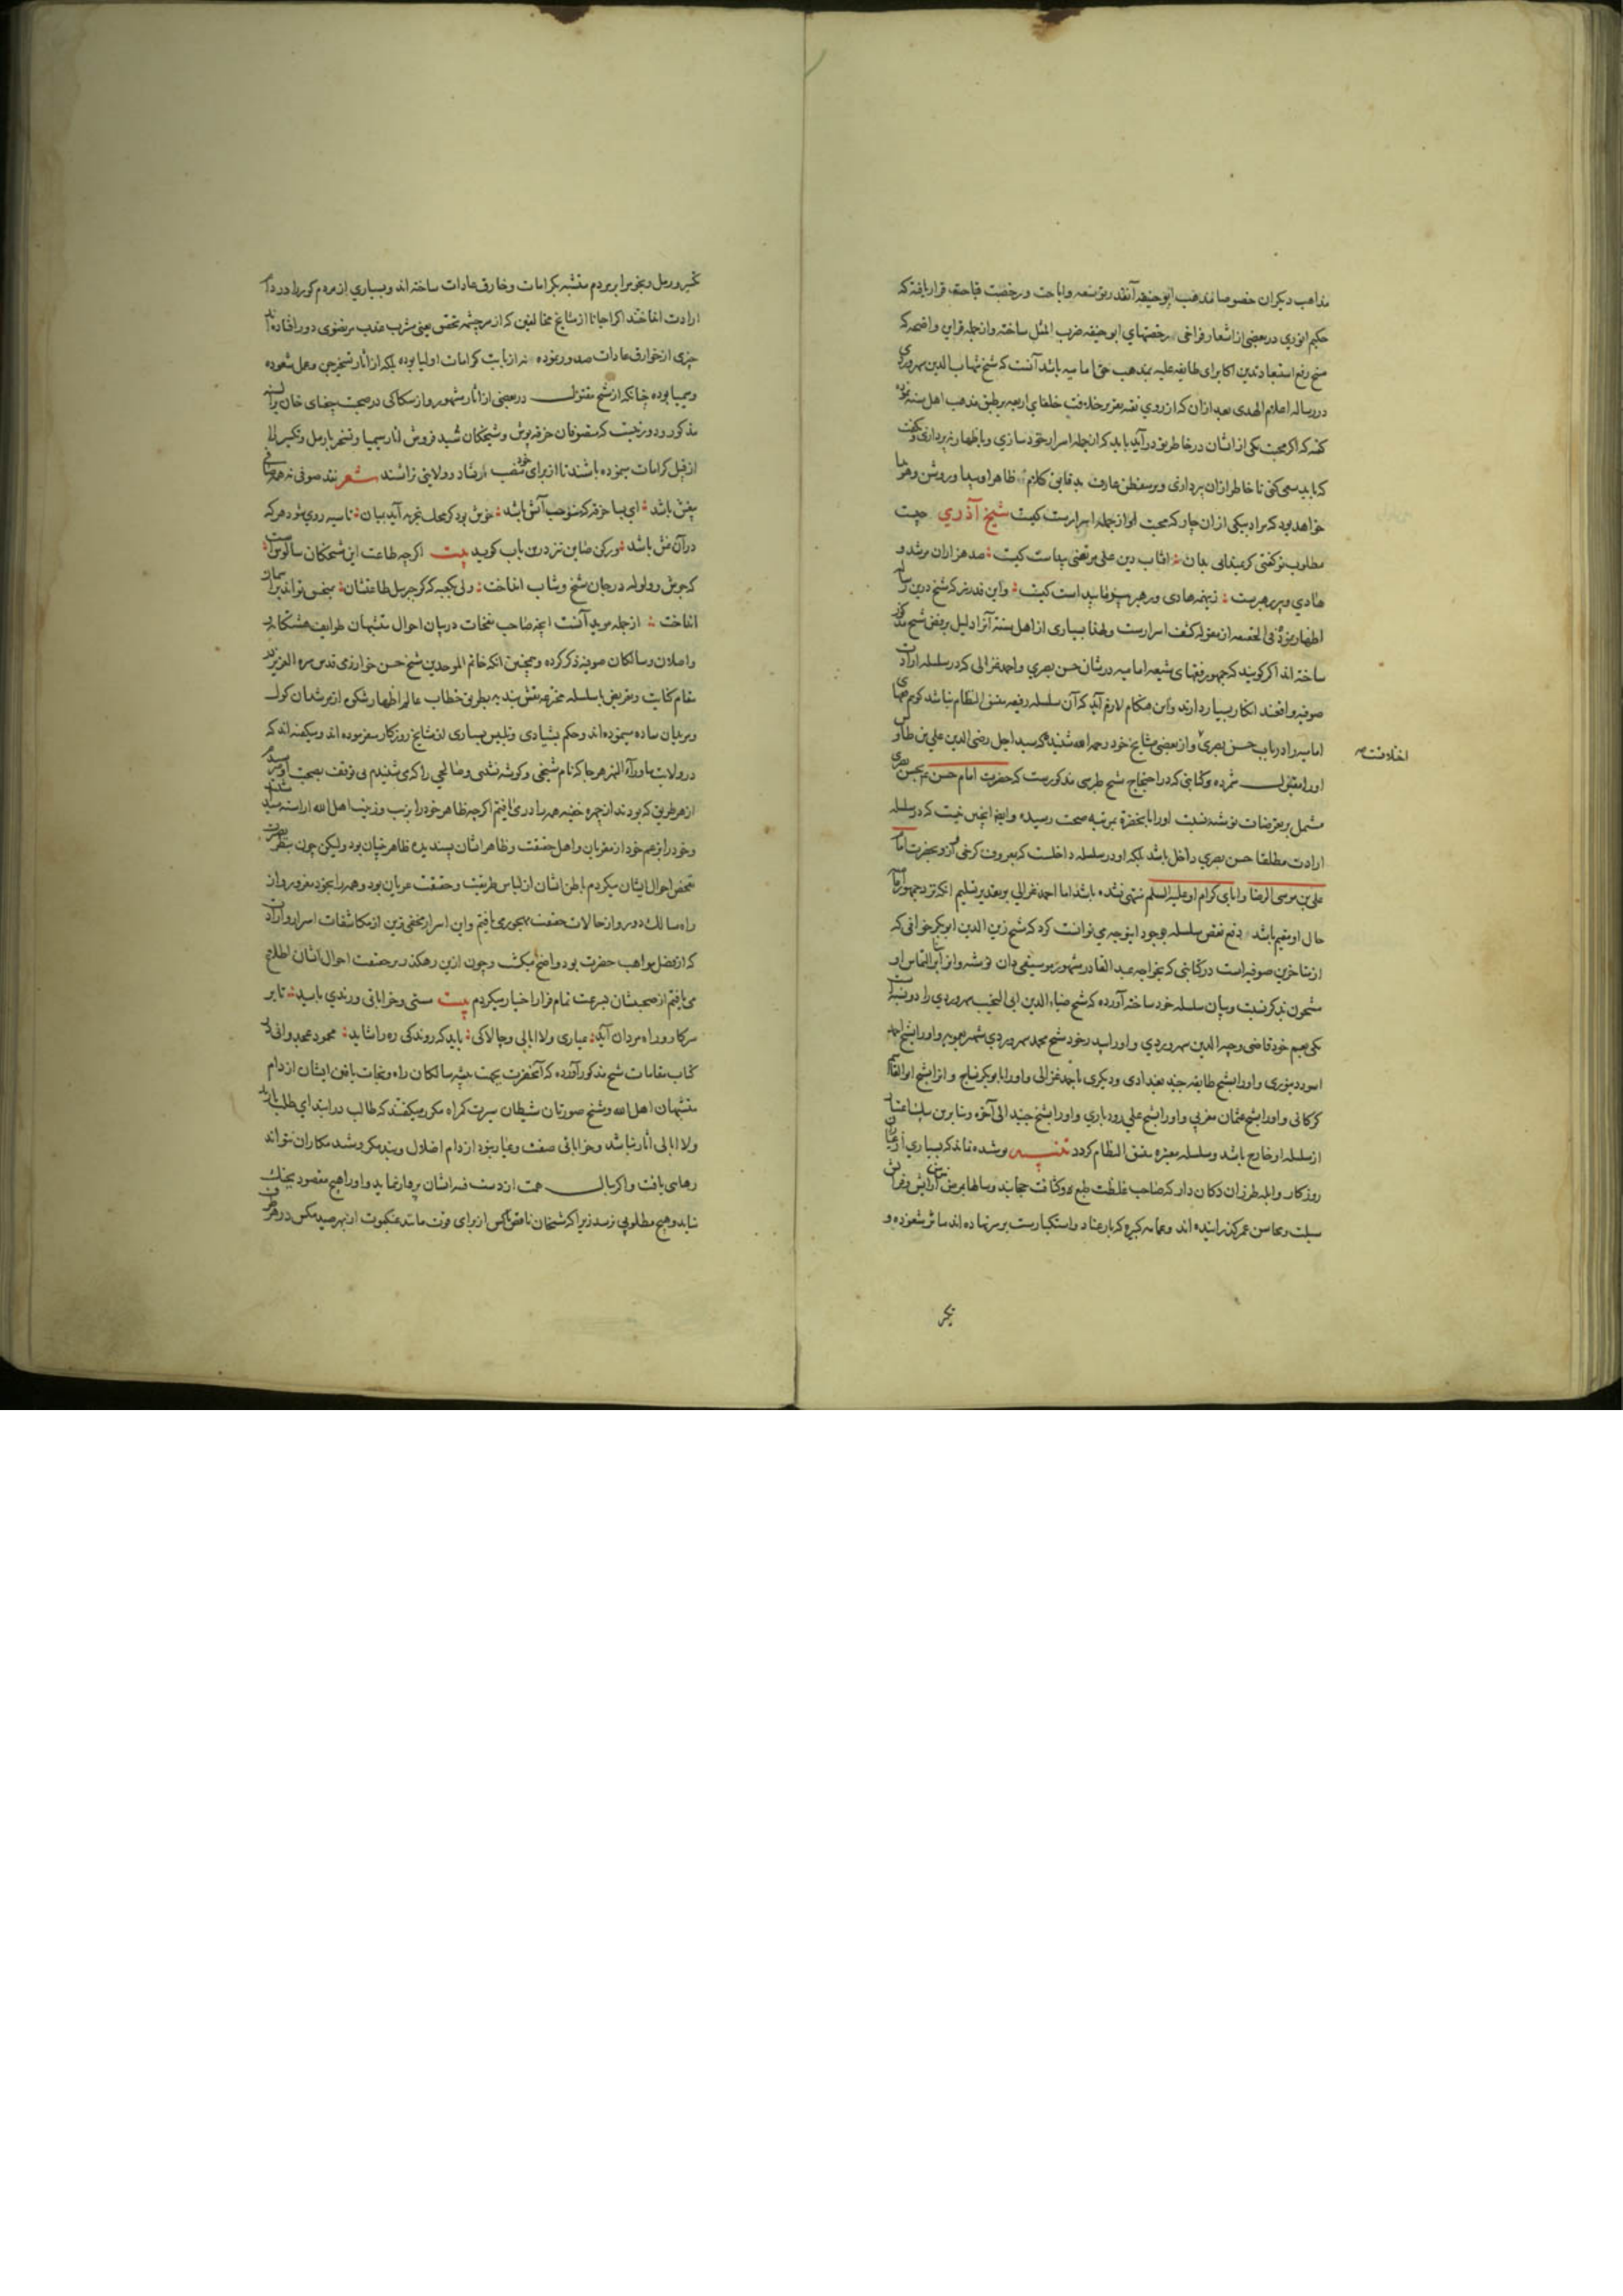 مذاهب دیکران خصوصا مذهب ابو حنیفه آنقدر توسعه واباحت ورخصت قباحت قرار یافته که
حکیم انوری در بعضی از اشعار فراخی رخصتهای ابو حنیفه ضرب المثل ساخته وازجمله قراین واضحه که
رفع استبعاد تدین اکابر این طایفه علیه بمذهب حق امامیه باشد آنست که شیخ شهاب الدین سهروردی
در رساله اعلام الهدی بعد ازان که از روی تقیه تقریر خلافت خلفای اربعه بر طبق مذهب اهل سنه نموده
کفته که اکر محبت یکی از اشان در خاطر تو درآید باید که آن جمله اسرار خود سازی وباظهار نپردازی
که باید سعی کنی تا خاطر ازان پردازی وبر متفطن عارف بدقایق کلام ظاهر وپیدا وروشن
خواهد بود که مراد بیکی ازان چار که محبت او از جمله اسرارست کیست شیخ آذري چیست
مطلوب تو کفتی کرمیدانی بدان آفتاب دین علی مرتضی پیداست کیست صد هزاران مرشد و
هادي وپیر رهبرست زینهمه هادی ورهبر پیداست کیست واین قدر نیز که شیخ درین
اظهار نموده فی الحقیقه از مقوله کشف اسرارست ولهذا بسیاری از اهل سنه آنرا دلیل بر رفض شیخ
ساخته اند اکر کویند که جمهور فقهای شیعه امامیه در شان حسن بصري واحمد غزالی که در سلسله ارادت
صوفیه واقعند انکار بسیار دارند واین هنکام لازم آید که آن سلسله رفیعه متسق النظام نباشد کویم
امامیه را در باب حسن بصری واز بعضی مشایخ خود رحمه الله شنیده که سید اجل رضی الدین علی بن طاوس
اورا مقبول شمرده وکتابتی که در احتجاج شیخ طبرسی مذکورست که حضرت امام حسن بحسن بصری
مشتمل بر تعرضات نوشته نسبت اورا بآنحضرة بمرتبه صحت رسیده وایضا اینچنین نیست که در سلسله
ارادت مطلقا حسن بصري داخل باشد بلکه او در سلسله داخلست که بمعروف کرخی وبحضرت امام
علی بن موسی الرضا وابای کرام او علیه السلم منتهی نشده باشد اما احمد غزالی بر تقدیر تسلیم آنکه نزد جمهور
حال او سقیم باشد دفع نقص سلسله بوجود او بوجهی توانست کرد که شیخ زین الدین ابو بکر خوافی که
از متاخرین صوفیه است در کتابتی که بخواجه عبد القادر مشهور نوشته التماس او
مشحون بذکر نسبت وبیان سلسله خود ساخته آورده که شیخ ضیاء الدین ابی النجیب سهروردي را دو نسبت
یکی بعم خود قاضی وجیه الدین سهروردي واورا بپدر خود شیخ محمد سهروردي شهیر بعمویه واورا بشیخ احمد
اسود دینوری واورا بشیخ طایفه جنید بغدادی ودیکری باحمد غزالی واورا بابو بکر نساج واورا بشیخ ابو القاسم
کرکانی واورا بشیخ عثمان مغربی واورا بشیخ علی رودباري واورا بشیخ جنید الی آخره وبنا برین
از سلسله او خارج باشد وسلسله معتبره متسق النظام کردد تنبیه پوشیده نماند که بسیاری از
روزکار وابله طرزان دکان دار که صاحب غلظت طبع وکثافت حجابند وسالها بر عرض
سبلت ومحاسن عمر کذرانیده اند وعمامه کبیره که بار عناد واستکبارست بر سر نهاده اند
اخلافست
تکر
تکبیر ورمل ونجوم را بر مردم مشتبه بکرامات وخارق عادات ساخته اند وبسیاري از مردم کور را در دام
ارادت انداختند اکر احیانا از مشایخ مخالفین که از سرچشمه تحقیق یعنی مشرب عذب مرتضوی دور افتاده
چیزی از خوارق عادات صدور نموده نه از بابت کرامات اولیا بوده بلکه از آثار تسخیر جن وعمل شعوذه
وسیمیا بوده چنانکه از شیخ مقتول در بعضی از آثار مشهور واز سکاکی در صحبت جغتای خان
مذکور ودور نیست که متصوفان خرقه پوش وشیخکان شید فروش آثار سیمیا وتسخیر یا رمل
از قبیل کرامات نموده باشند تا از برای خود منصب ارشاد وولایتی تراشند شعر نقد صوفی نه همه صافی
بیغش باشد ای بسا خرقه که مستوجب آتش باشد خوش بود کر محک تجربه آید بمیان تا سیه روی شود هر که
در آن غش باشد ورکن صاین نیز درین باب کوید بیت اکر چه طاعت این شیخکان سالوس
که جوش وولوله در جان شیخ وشاب انداخت ولی بکعبه که کر جبرئیل طاعتشان بمنجنیق تواند
انداخت ازجمله موید آنست آنچه صاحب نفحات در بیان احوال متشبهان طوایف هشتکانه
واصلان وسالکان صوفیه ذکر کرده وهمچنین آنکه خاتم الموحدین شیخ حسن خوارزمی قدس سره العزیز در
مقام کنایت وتعریض باسلسله نقشبندیه بطریق خطاب عالم اظهار شکوه از مرشدان کول
ومریدان ساده مینموده اند وحکم شیادی وتلبیس بسیاری از مشایخ روزکار سفر نموده اند ومیکفته اند که
در ولایت ماوراء النهر هر جا که نام شیخی وکوشه نشینی وصالحی را که می شنیدم بی توقف بصحبت او میرسیدم
از هر طریق که بودند از چهره خفیه همه را در می یافتم اکرچه ظاهر خود را بزیب وزینت اهل الله آراسته
وخود را بزعم خود از مقربان واهل حقیقت وظاهر اشان پسندیده ظاهر بینان بود ولیکن چون
تفحص احوال ایشان میکردم باطن اشان از لباس طریقت وحقیقت عریان بود وهمه را بخود مغرور واز
راه سالک دور واز حالات حقیقت مهجور می یافتم واین اسرار مخفی ترین از مکاشفات اسرار
که از فضل مواهب حضرت بود واضح میکشت وچون ازین رهکذر بر حقیقت احوال اشان اطلاع
می یافتم از صحبتشان بسرعت تمام فرار اختیار میکردم بیت مستی وخراباتی ورندی باید تا بر
سر کار وراه مردان آید عیاری ولا ابالی وچالاکی باید که روندکی ره را شاید محمود عجدوانی
کتاب مقامات شیخ مذکور آورده که آنحضرت بجهت سالکان راه ونجات یافتن ایشان از دام
متشبهان اهل الله وشیخ صورتان شیطان سیرت کمراه مکرر میکفتند که طالب در ابتدای طلب
ولا ابالی آثار نباشد وخراباتی صفت وعیار نبود از دام اضلال وبند مکر وشید مکاران نتواند
رهایی یافت واکر بال همت از دست اشان پرواز نماید واورا هیچ مقصود بچنک
نیاید وهیچ مطلوبی نرسد زیرا که شیخان ناقص ناکس از برای قوت مانند عنکبوت از بهر صید مکس در هر